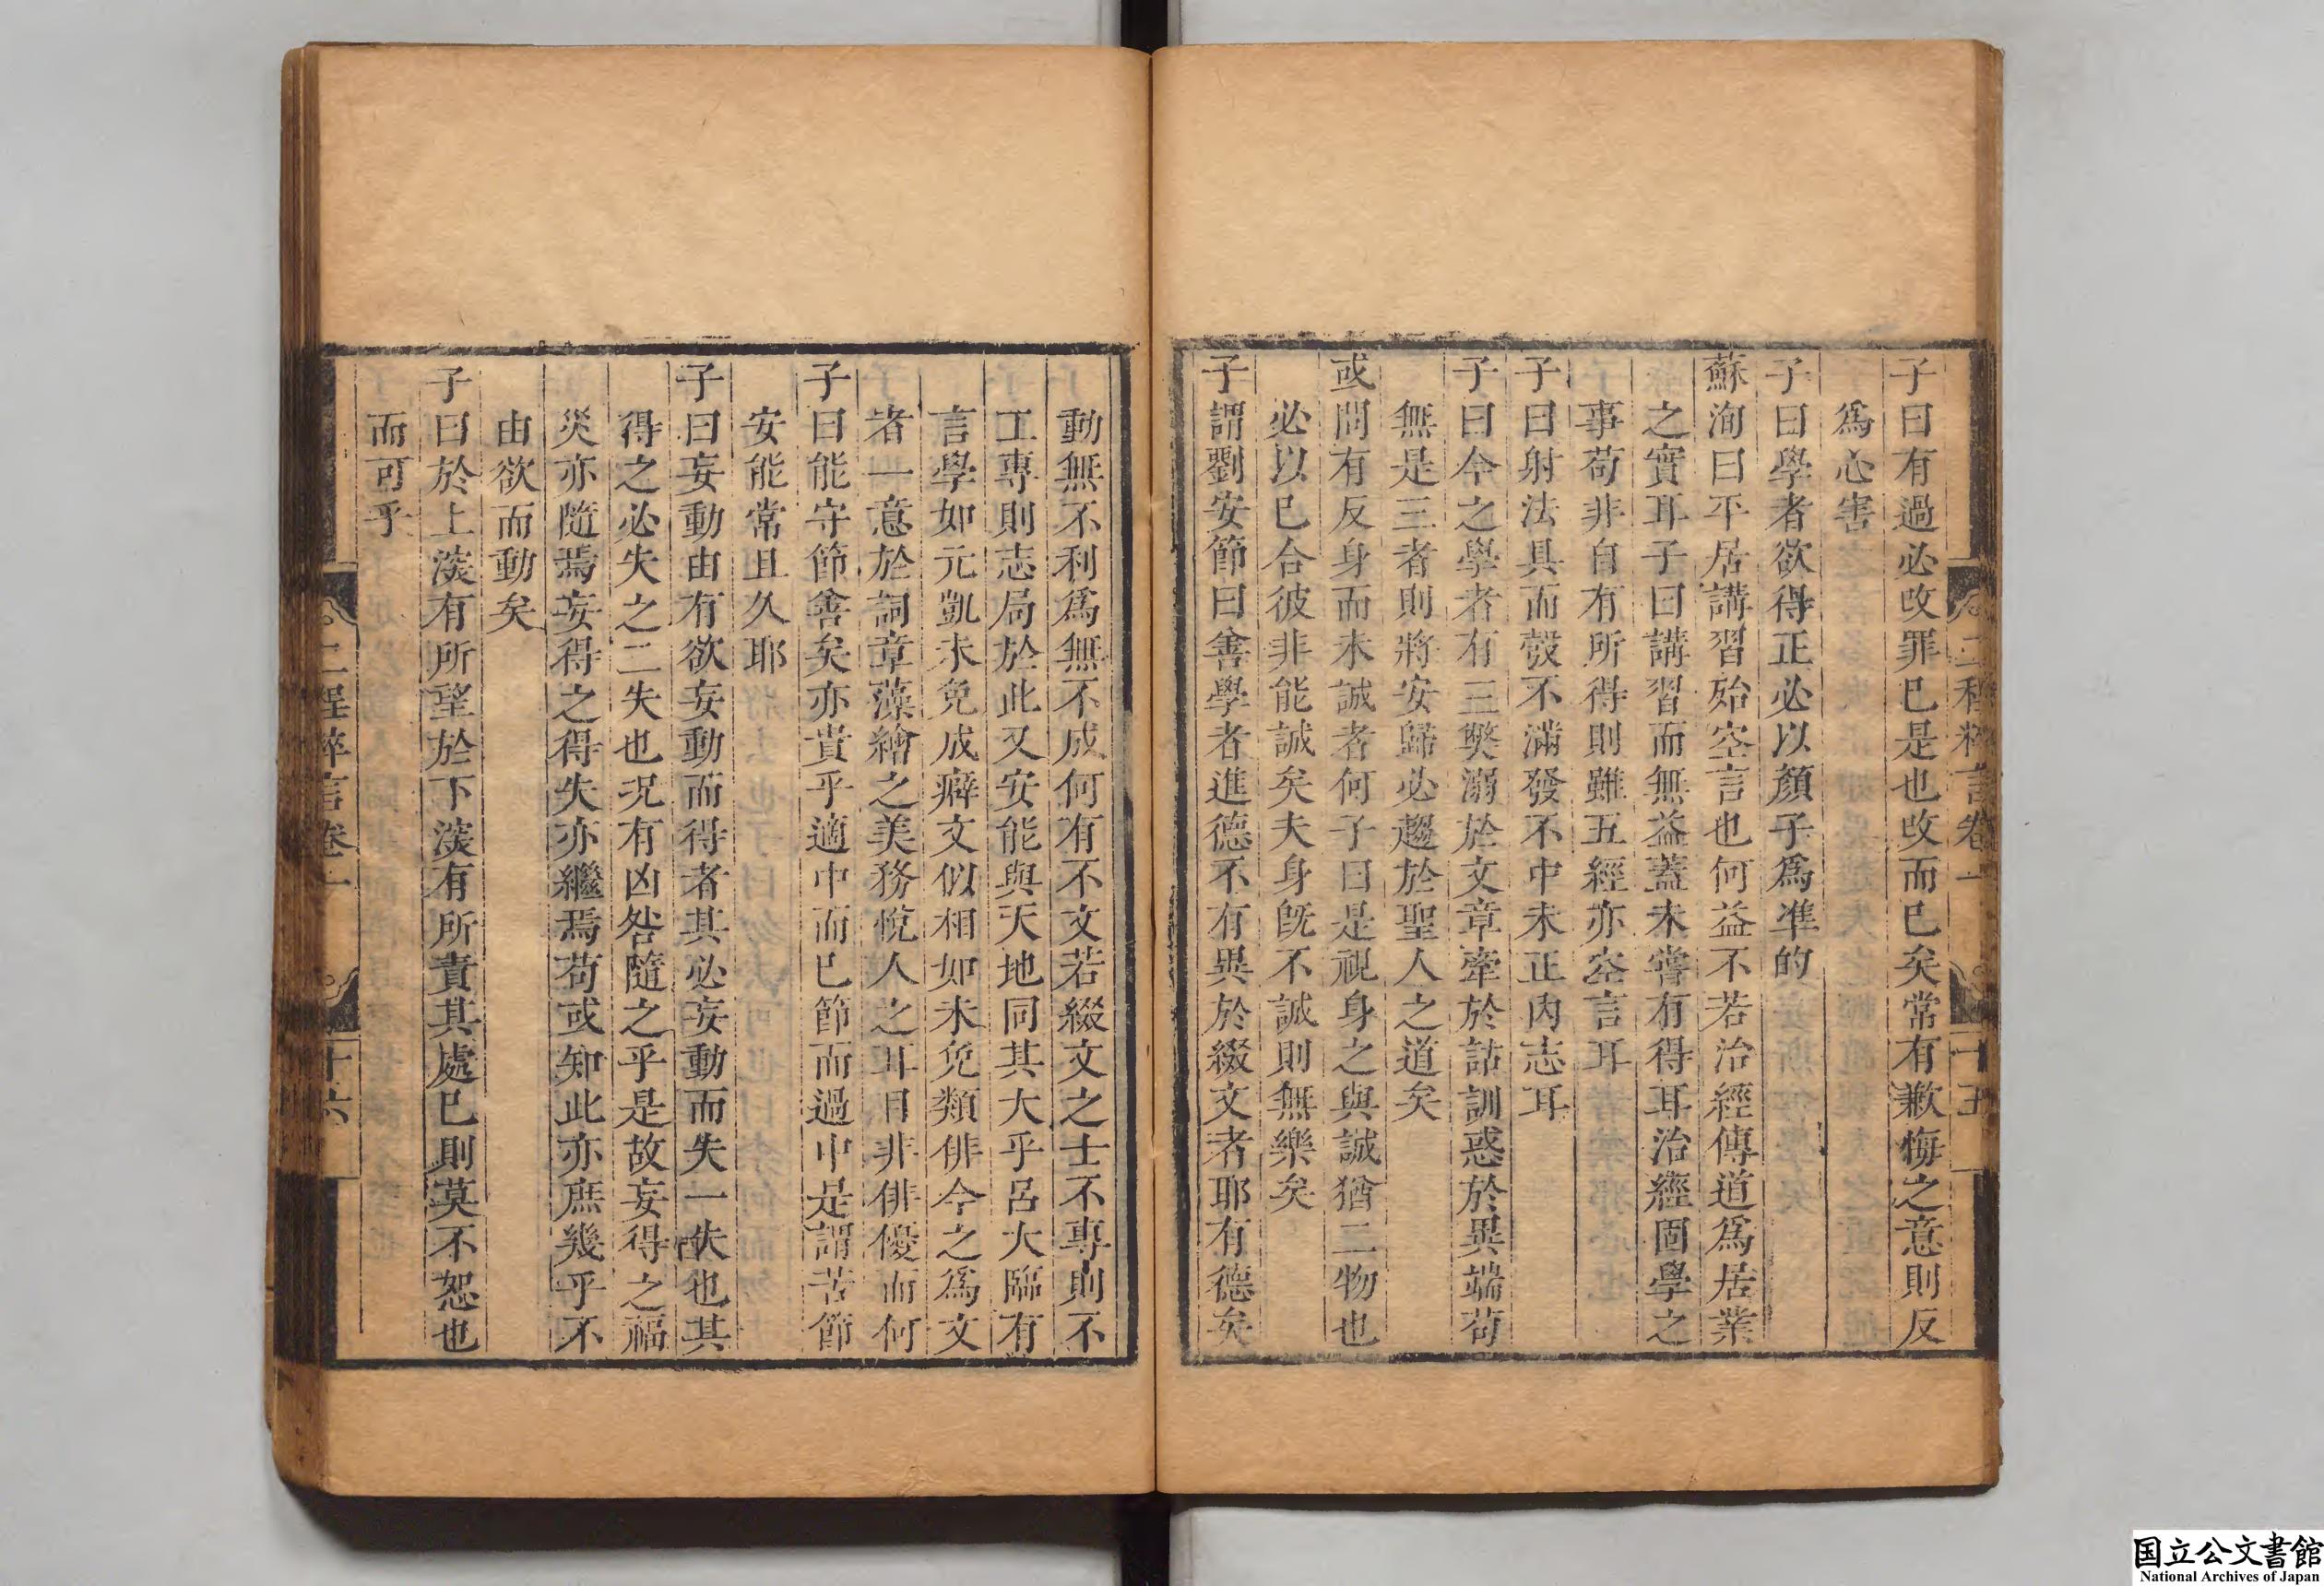 子曰有過必改罪已是也改而已矣常有歉悔之意則反
爲心害
子曰學者欲得正必以顏子爲準的
蘇洵曰平居講習殆空言也何益不若治經傳道爲居業
之實耳子曰講習而無益蓋未嘗有得耳治經固學之
事苟非自有所得則雖五經亦空言耳
子曰射法具而彀不滿發不中未正內志耳
子曰今之學者有三獘溺於文章牽於詁訓惑於異端苟
無是三者則將安歸必趨於聖人之道矣
或問有反身而未誠者何子曰是視身之與誠猶二物也
必以已合彼非能誠矣夫身旣不誠則無樂矣
子謂劉安節曰善學者進德不有異於綴文者耶有德矣
二程粹言卷一
十五
動無不利爲無不成何有不文若綴文之士不專則不
工專則志局於此又安能與天地同其大乎呂大臨有
言學如元凱未免成癖文似相如未免類俳今之爲文
者一意於詞章藻繪之美務悅人之耳目非俳優而何
子曰能守節善矣亦貴乎適中而已節而過中是謂苦節
安能常且久耶
子曰妄動由有欲妄動而得者其必妄動而失一失也其
得之必失之二失也况有凶咎隨之乎是故妄得之福
災亦隨焉妄得之得失亦繼焉苟或知此亦庶幾乎不
由欲而動矣
子曰於上深有所望於下深有所責其處已則莫不恕也
而可乎
二程粹言卷一
十六
国立公文書館
National Archives of Japan